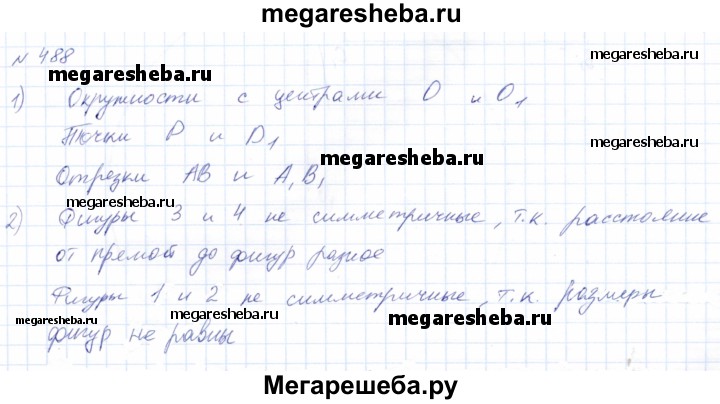 megaresheba.ru
№ 488
megaresheba.ru
megaresheba.ru
1) Окружности с центрами O и O1
Точки P и D1
megaresheba.ru
Отрезки AB и A1B1
megaresheba.ru
2) Фигуры 3 и 4 не симметричные, т.к. расстояние
от премой до фигур разное
megaresheba.ru
Фигуры 1 и 2 не симметричные, т.к. размеры
megaresheba.ru
megaresheba.ru
megaresheba.ru
фигур не равны
Мегарешеба.ру